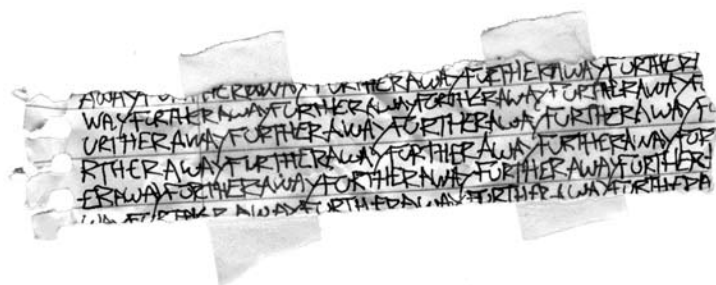 AWAYFURTHERAWAYFURTHERAWAYFURTHERAWAYFURTHER
WAYFURTHERAWAYFURTHERAWAYFURTHERAWAYFURTHERAWAYF
URTHERAWAYFURTHERAWAYFURTHERAWAYFURTHERAWAYFU
RTHERAWAYFURTHERAWAYFURTHERAWAYFURTHERAWAYFUR
ERAWAYFURTHERAWAYFURTHERAWAYFURTHERAWAYFURTHER
WAYFURTHERAWAYFURTHERAWAYFURTHERAWAYFURTHERA